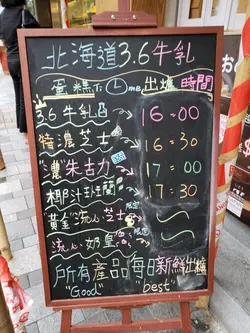 北海道3.6牛乳
蛋糕 出爐時間
3.6牛乳 16:00
特濃芝士 16:30
"濃"朱古力 17:00
椰汁斑蘭 限定 17:30
"黃金"流心芝士 ~
流心奶皇 限定 ~
所有產品每日新鮮出爐
"Good" "best"